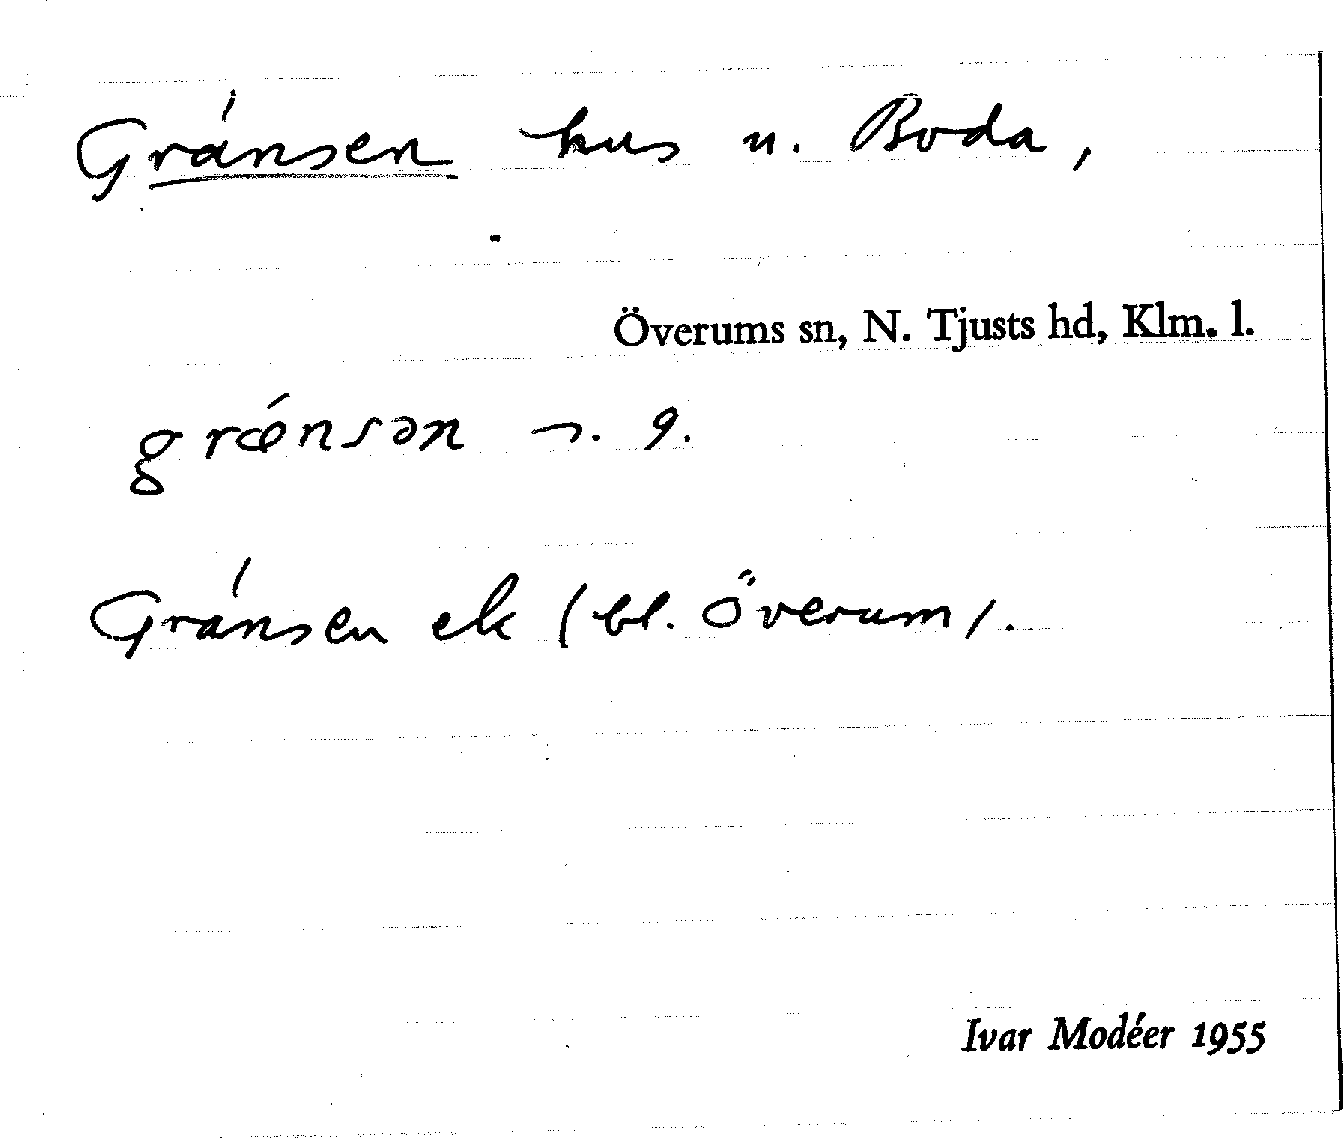 Gränsen hus u. Boda,
Överums sn, N. Tjusts hd, Klm. l.
grǽnsən 9.
Gränsen ek (bl. Överum).
Ivar Modéer 1955